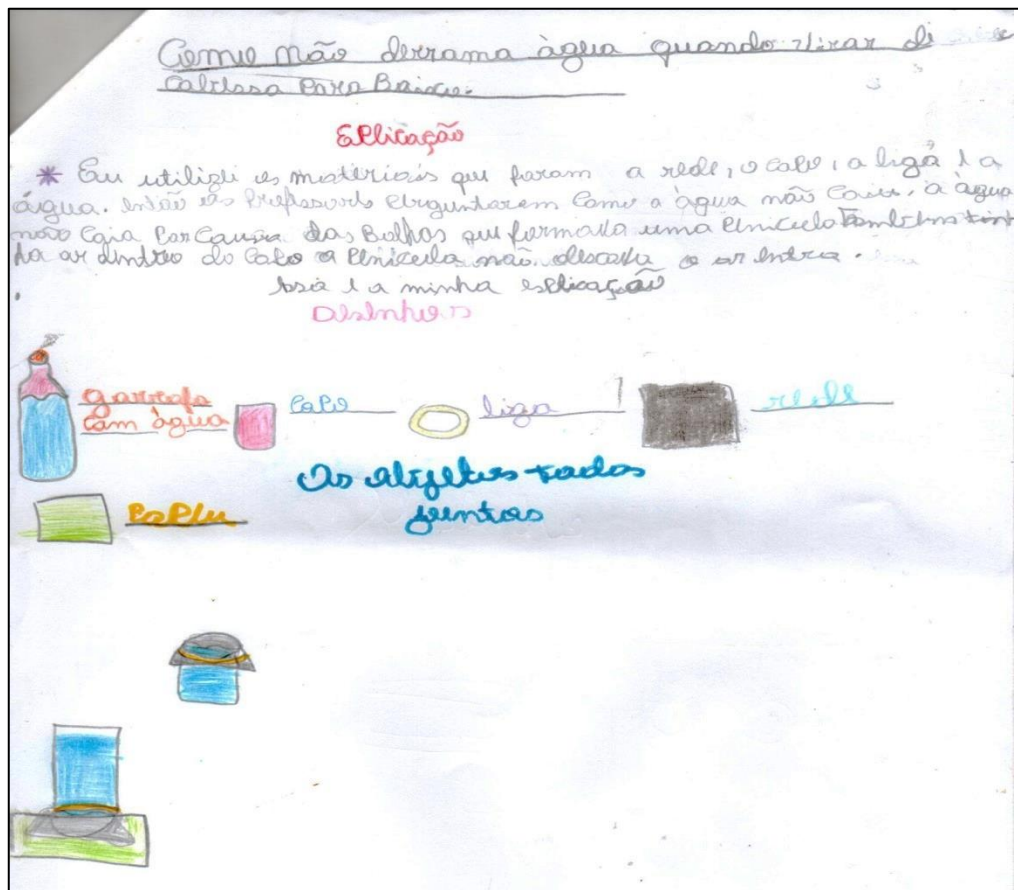 Como não derrama àgua quando virar di
Cabessa Para Baixo.
Esplicação
* Eu utilizei os materiais que foram a rede, o copo, a liga e a
água. então os Professores Perguntarem como a àgua não caiu, a àgua
não caia Por Causa das Bolhas que formava uma Pinicula Também tin
ha ar dentro do Copo a Pinicula não deicha o ar entra.
. Essa é a minha esplicação
Desenhos
garrafa
com àgua
Copo
liga
rede
Os objetos todos
juntos
Papeu